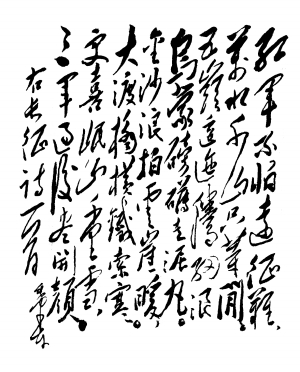 红军不怕远征难
万水千山只等闲
五岭逶迤腾细浪
乌蒙磅礴走泥丸
金沙浪拍云崖暖
大渡桥横铁索寒
更喜岷山千里雪
三军过后尽开颜
右长征诗一首